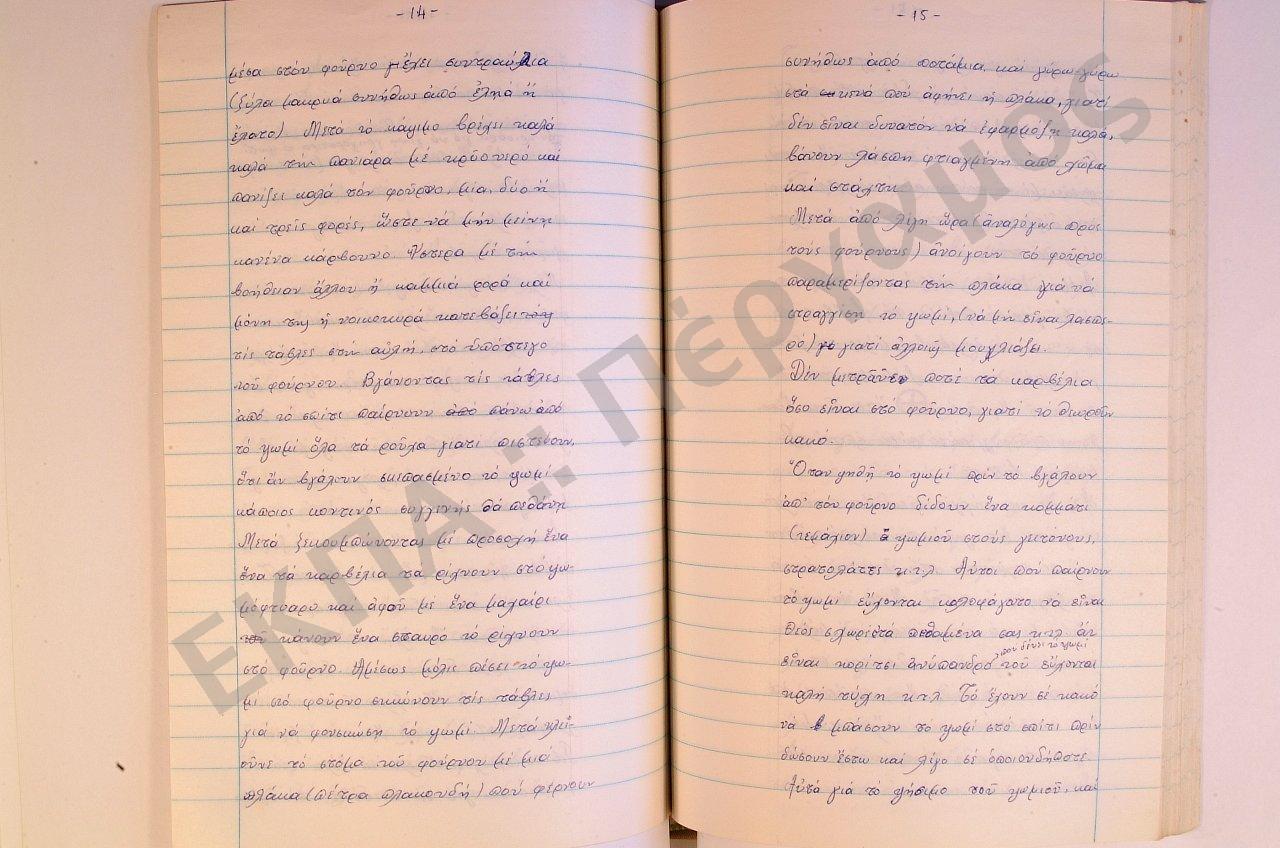 -14-
μέσα στόν φοῦρνο μέχει συντραύλια
(ξύλα μακρυά συνήθως ἀπό ἐληά ἤ
ἔλατο) Μετά τό κάψιμο βρέχει καλά
καλά την πανιάρα μέ κρῦο νερό καί
πανίζει καλά τόν φοῦρνο, μία, δύο ἤ
καί τρεῖς φορές, ὥστε νά μήν μείνη
κανένα κάρβουνο. Ὕστερα μέ τήν
βοήθειαν ἄλλου ἤ καμμιά φορά καί
μόνη της ἡ νοικοκυρά κατεβάζει
τίς τάβλες στήν αὐλή, στό ὑπόστεγο
τοῦ φούρνου. Βγάνοντας τίς τάβλες
ἀπό τό σπίτι παίρνουν ἀπό πάνω ἀπό
τό ψωμί ὅλα τά ροῦχα γιατί πιστεύουν,
ὅτι ἄν βγάλουν σκεπασμένο τό ψωμί
κάποιος κοντινός συγγενής θά πεθάνη
Μετά ξεκουμπώνοντας μέ προσοχή ἕνα
ἕνα τά καρβέλια τά ρίχνουν στό ψω-
μόφτυαρο καί ἀφοῦ μέ ἕνα μαχαίρι
κάνουν ἕνα σταυρό τό ρίχνουν
στό φοῦρνο. Ἀμέσως μόλις πέσει τό ψω-
μί στό φοῦρνο σηκώνουν τίς τάβλες
γιά νά φουσκώση τό ψωμί. Μετά κλεί-
οῦνε τό στόμα τοῦ φούρνου μέ μιά
πλάκα (πέτρα πλακουδή) πού φέρνουν
-15-
συνήθως ἀπό ποτάμια, καί γύρω-γύρω
στά κενά πού ἀφήνει ἡ πλάκα, γιατί
δέν εἶναι δυνατόν νά ἐφαρμόζη καλά,
βάνουν λάσπη φτιαγμένη ἀπό χῶμα
καί στάχτη.
Μετά ἀπό λίγη ὥρα (ἀναλόγως πρός
τούς φούρνους) ἀνοίγουν τό φοῦρνο
παραμερίζοντας τήν πλάκα γιά νά
στραγγίση τό ψωμί, (νά μή εἶναι λασπε-
ρό) γιατί ἀλλοιῶς μουχλιάζει.
Δέν μετρᾶνε ποτέ τά καρβέλια
ὅσο εἶναι στό φοῦρνο, γιατί τό θεωροῦν
κακό.
Ὅταν ψηθῆ τό ψωμί πρίν τό βγάλουν
ἀπ' τόν φοῦρνο δίδουν ἕνα κομμάτι
(τεμάχιον) ψωμιοῦ στούς γειτόνους,
στρατολάτες κ.τ.λ. Αὐτοί πού παίρνουν
τό ψωμί εὔχονται καλοφάγωτο νά εἶναι
Θεός σχωρέστα πεθαμένα σας κ.τ.λ. ἄν
εἶναι κορίτσι ἀνύπανδρο, που δίνει το ψωμί τοῦ εὔχονται
καλή τύχη κ.τ.λ. Τό ἔχουν σέ κακό
νά μπάσουν τό ψωμί στό σπίτι πρίν
δώσουν ἔστω καί λίγο σέ ὁποιονδήποτε
Αὐτά γιά τό ψήσιμο τοῦ ψωμιοῦ, καί
ΕΚΠΑ :: Πέργαμος